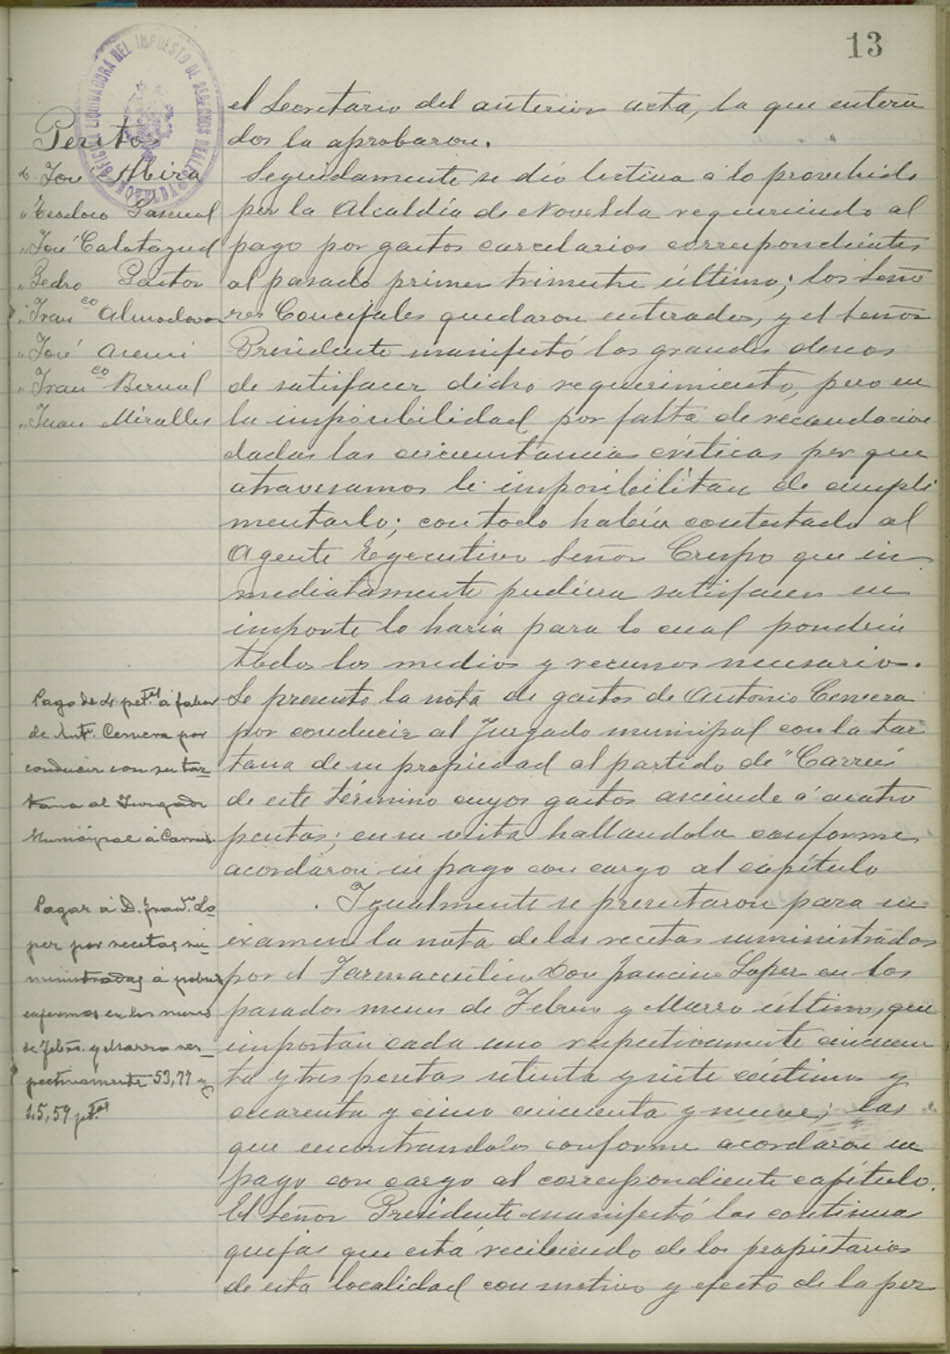 13
el Secretario del anterior acta, la que entera
dos la aprobaron.
Seguidamente se dió lectura a lo provehido
por la Alcaldía de Novelda requeriendo al
pago por gastos carcelarios correspondientes
al pasado primer trimestre último; los seño
res Concejales quedaron enterados, y el señor
Presidente manifestó los grandes deseos
de satisfacer dicho requerimiento, pero en
la imposibilidad por falta de recaudacion
dadas las circunstancias críticas por que
atravesamos le imposibilitan de cumpli
mentarlo; con todo habia contestado al
Agente Egecutivo Señor Crespo que in
mediatamente pudiera satisfacer su
importe lo haria para lo cual pondria
todos los medios y recursos necesarios.
Se presentó la nota de gastos de Antonio Cervera
por conducir al Juzgado municipal con la tar
tana de su propiedad al partido de "Carrús
de este término cuyos gastos asciende á cuatro
pesetas; en su vista hallandola conforme
acordaron su pago con cargo al capítulo
. Igualmente se presentaron para su
examen la nota de las recetas suministradas
por el Farmaceutico Don Francisco Lopez en los
pasados meses de Febrero y Marzo último, que
importan cada uno respectivamente cincuen
ta y tres pesetas setenta y siete céntimos y
cuarenta y cinco cincuenta y nueve; las
que encontrandolas conforme acordaron su
pago con cargo al correspondiente capítulo.
El Señor Presidente manifestó las continuas
quejas que está recibiendo de los propietarios
de esta localidad con motivo y efecto de la per
Perito
José Mira
" Teodoro Pascual
" José Calatayud
" Pedro Pastor
" Fran.co Almodovar
" José Asensi
" Fran.co Bernal
" Juan Miralles
Pago de 4 pet.as á favor
de Ant.o Cervera por
conducir con su tar-
tana al Juzgado
Municipal á Carrus
Pagar á D. Fran.co Lo
pez por recetas su
ministradas á pobres
enfermos en los meses
de Feb.o y Marzo res-
pectivamente 53,77 y
45,59 ptas